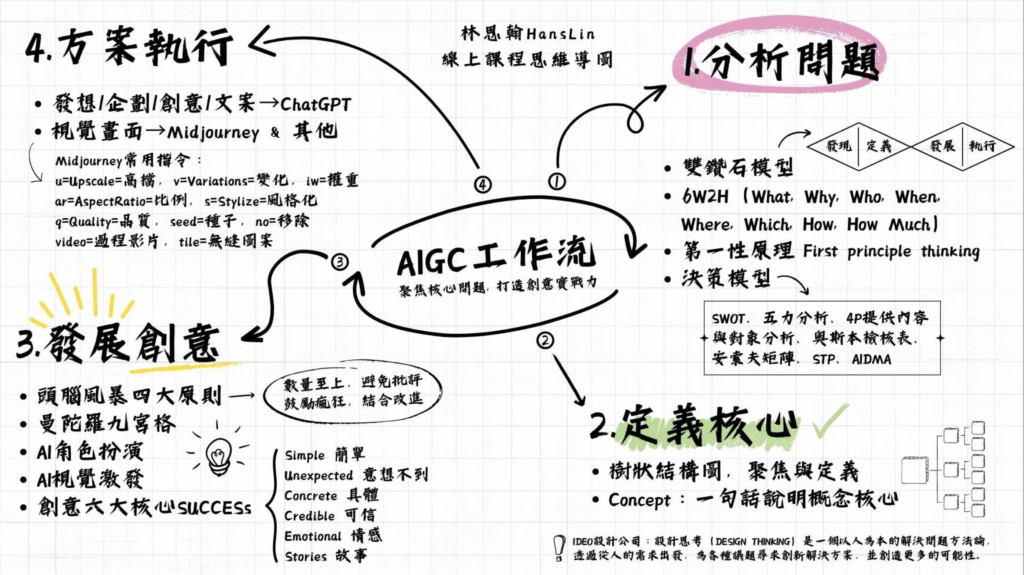 林思翰HansLin
線上課程思維導圖
AIGC工作流
聚焦核心問題, 打造創意實戰力
①
1.分析問題
發現 定義 發展 執行
• 雙鑽石模型
• 6W2H (What, Why, Who, When,
Where, Which, How, How Much)
• 第一性原理 First principle thinking
• 決策模型
SWOT, 五力分析, 4P提供內容
與對象分析, 奧斯本檢核表,
安索夫矩陣, STP, AIDMA
②
2.定義核心
• 樹狀結構圖, 聚焦與定義
• Concept：一句話說明概念核心
IDEO設計公司：設計思考 (DESIGN THINKING) 是一個以人為本的解決問題方法論,
透過從人的需求出發, 為各種議題尋求創新解決方案, 並創造更多的可能性。
③
3.發展創意
• 頭腦風暴四大原則
數量至上, 避免批評
鼓勵瘋狂, 結合改進
• 曼陀羅九宮格
• AI角色扮演
• AI視覺激發
• 創意六大核心SUCCESs
Simple 簡單
Unexpected 意想不到
Concrete 具體
Credible 可信
Emotional 情感
Stories 故事
④
4.方案執行
• 發想/企劃/創意/文案→ChatGPT
• 視覺畫面→Midjourney & 其他
Midjourney常用指令：
u=Upscale=高檔, v=Variations=變化, iw=權重
ar=AspectRatio=比例, s=Stylize=風格化
q=Quality=品質, seed=種子, no=移除
video=過程影片, tile=無縫圖案